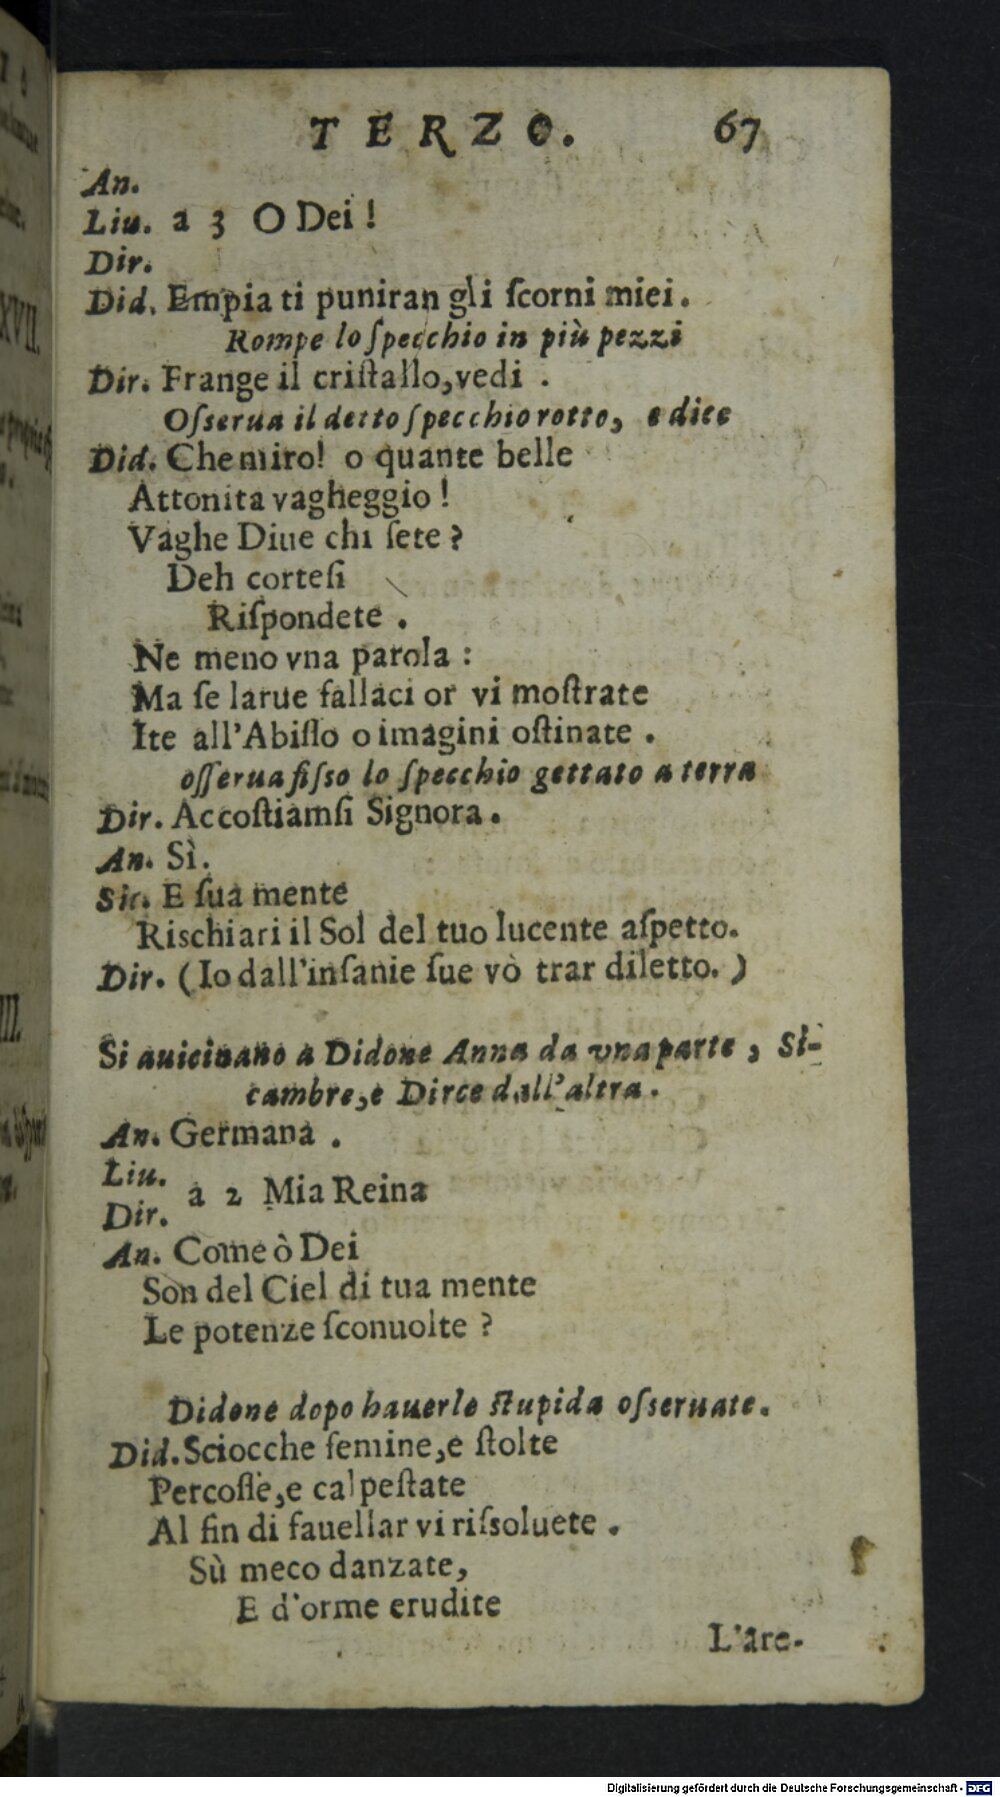 TERZO. 67
An.
Liu. a 3 O Dei!
Dir.
Did. Empia ti puniran gli ſcorni miei.
Rompe lo ſpecchio in più pezzi
Dir. Frange il criſtallo, vedi.
Oſserua il detto ſpecchio rotto, e dice
Did. Che miro! o quante belle
Attonita vagheggio!
Vaghe Diue chi ſete?
Deh corteſi
Riſpondete.
Ne meno vna parola:
Ma ſe larue fallaci or vi moſtrate
Ite all'Abiſſo o imagini oſtinate.
oſſerua fiſso lo ſpecchio gettato a terra
Dir. Accoſtiamſi Signora.
An. Sì.
Sic. E ſua mente
Rischiari il Sol del tuo lucente aſpetto.
Dir. (Io dall'inſanie ſue vò trar diletto.)
Si auicinano a Didone Anna da vna parte, Si-
cambre, e Dirce dall'altra.
An. Germana.
Liu.
a 2 Mia Reina
Dir.
An. Come ò Dei
Son del Ciel di tua mente
Le potenze ſconuolte?
Didone dopo hauerle ſtupida oſseruate.
Did. Sciocche femine, e ſtolte
Percoſſe, e calpeſtate
Al fin di fauellar vi riſsoluete.
Sù meco danzate,
E d'orme erudite
L'are-
Digitalisierung gefördert durch die Deutsche Forschungsgemeinschaft - DFG